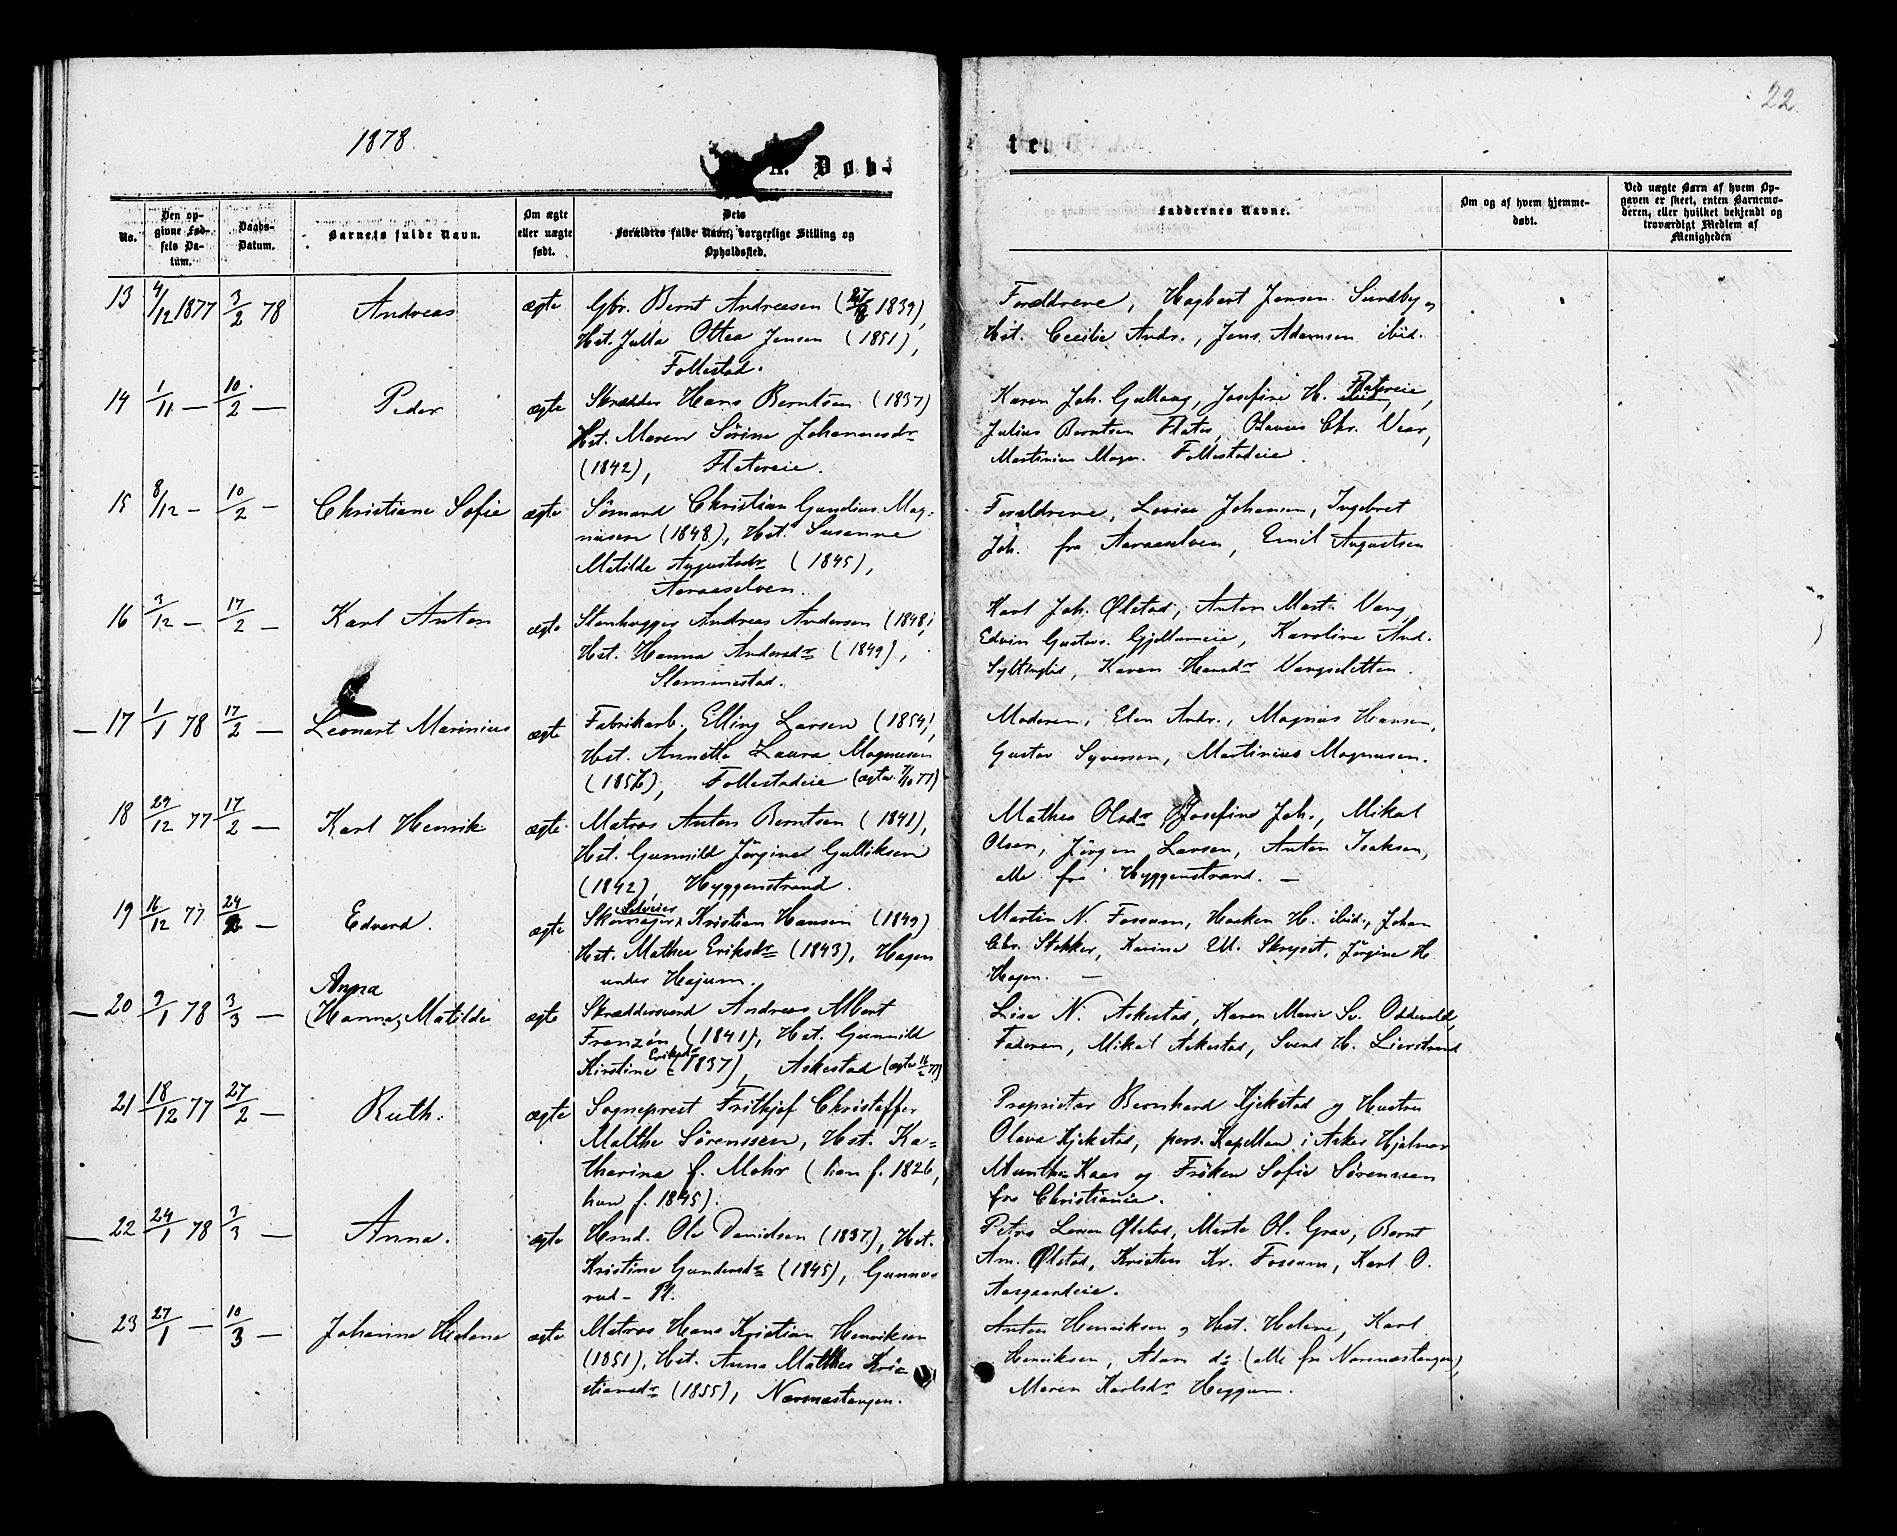 1878.
A. Døb-
No.
Den opgivne Fødsels Datum.
Daabs-Datum.
Barnets fulde Navn.
Om ægte eller uægte født.
Dets Forældres fulde Navn, borgerlige Stilling og Opholdssted.
13 4/12 1877 3/2 78 Andreas ægte Gbr. Bernt Andreasen (1839),
Hst. Julla Ottea Jensen (1851),
Follestad.
14 1/11 — 10/2 — Peder ægte Skrædder Hans Berntsen (1837)
Hst. Maren Sørine Johannesdr
(1842), Flatereie.
15 8/12 — 10/2 — Christiane Sofie ægte Sømand Christian Gundius Mag-
nusen (1848), Hst. Susanne
Matilde Augustsdr (1845),
Aaraaselven.
16 3/12 — 17/2 — Karl Anton ægte Stenhugger Andreas Andersen (1848),
Hst. Hanna Andersdr (1849),
Slemmestad.
17 1/1 78 17/2 — Leonart Marinius ægte Fabrikarb. Elling Larsen (1854),
Hst. Annette Laura Magnusen
(1856), Follestadeie (ægtev. 7/10 77)
18 29/12 77 17/2 — Karl Henrik ægte Matros Anton Berntsen (1841),
Hst. Gunnild Jørgine Gulliksen
(1842), Hyggenstrand.
19 16/12 77 24/2 — Edvard. ægte Skomager Selveier Kristian Hansen (1849)
Hst. Mathea Eriksdr (1843), Hagen
under Højum.
Anna
20 9/1 78 3/3 — (Hanna) Matilde ægte Skræddersvend Andreas Albert
Franzén (1841), Hst. Gunnild
Kirstine Eriksdr (1837), Askestad (ægtev 16/2 77)
21 18/12 77 27/2 — Ruth. ægte Sogneprest Frithjof Christoffer
Malthe Sørenssen, Hst. Ka-
tharina f. Mohr (han f. 1826,
hun f. 1845).
22 24/1 78 3/3 — Anna. ægte Hmd. Ole Danielsen (1837), Hst.
Kristine Gundersdr (1845), Gunners-
rud - Pl.
23 27/1 — 10/3 — Johanne Helene ægte Matros Hans Kristian Henriksen
(1851), Hst. Anna Mathea Kri-
stiansdr (1855), Nærnæstangen.
22.
te.
Faddernes Navne.
Om og af hvem hjemmedøbt.
Ved uægte Børn af hvem Opgaven er skeet, enten Barnemoderen, eller hvilket bekjendt og troværdigt Medlem af Menigheden
Forældrene, Hagbart Jensen Sundby og
Hst. Cecilie Andr., Jens Adamsen ibid.
Karen Joh. Gullaug, Josefine H. Flatereie,
Julius Berntsen Flater, Olavus Chr. Vear,
Martinius Magn. Follestadeie.
Forældrene, Lovise Johansen, Ingebret
Joh. fra Aaraaselven, Emil Augustsen
Karl Joh. Ølstad, Anton Mart. Vang,
Edvin Gustavs. Gjeltumeie, Karoline And.
Syltingliø, Karen Hansdr Vangsletten.
Moderen, Elen Andr., Magnus Hansen,
Gustav Syversen, Martinius Magnusen.
Mathea Olsdr, Josefine Joh., Mikal
Olsen, Jørgen Larsen, Anton Isaksen,
alle fra Hyggenstrand. —
Martin N. Fossum, Haaken H. ibid., Johan
Chr. Stokker, Karine M. Skryset, Jørgine H.
Hagen. —
Lise N. Askestad, Karen Marie Sv. Oddevald,
Faderen, Mikal Askestad, Svend H. Lierstrand
Proprietær Bernhard Kjekstad og Hustru
Olava Kjekstad, pers. Kapellan i Asker Hjalmar
Munthe Kaas og Frøken Sofie Sørenssen
fra Christiania.
Petra Larsen Ølstad, Marte Ol. Grav, Bernt
Am. Ølstad, Kristen Kr. Fossum, Karl O.
Aasgaardeie.
Anton Henriksen og Hst. Helene, Karl
Henriksen, Adam do (alle fra Nærnæstangen),
Maren Karlsdr Heggum.